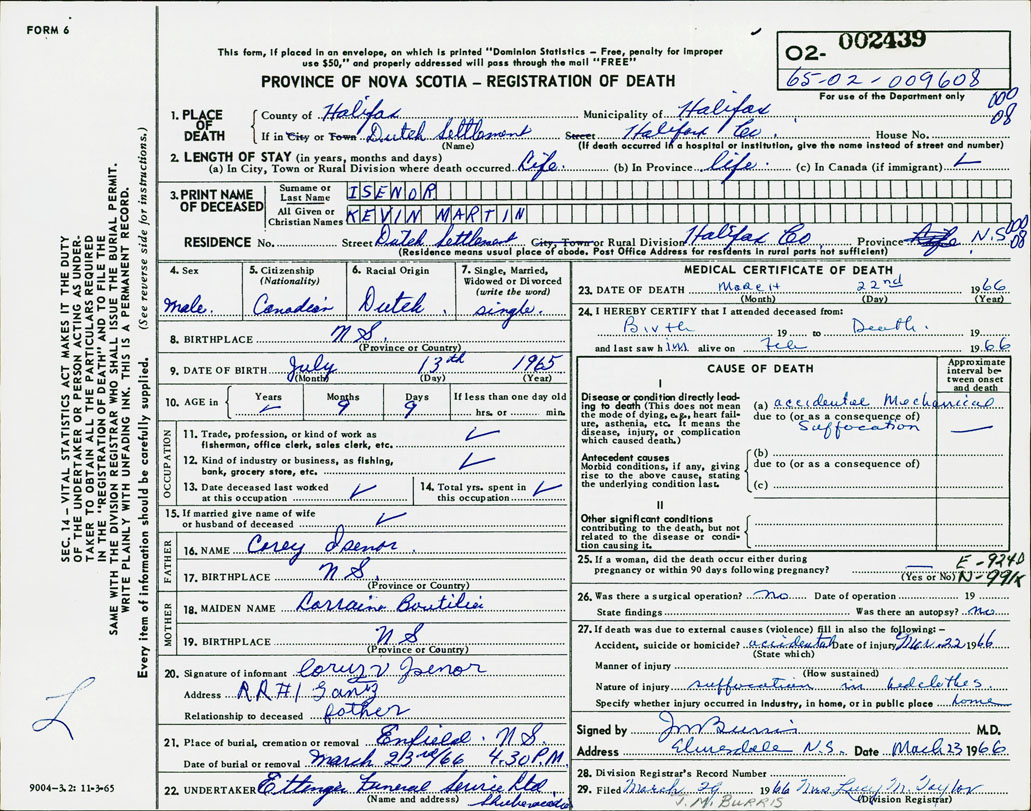 FORM 6
This form, if placed in an envelope, on which is printed "Dominion Statistics – Free, penalty for improper
use $50," and properly addressed will pass through the mail "FREE"
PROVINCE OF NOVA SCOTIA – REGISTRATION OF DEATH
O2- 002439
65-02-009608
For use of the Department only
000
08
1. PLACE OF DEATH
County of Halifax Municipality of Halifax
If in City or Town Dutch Settlement Street Halifax Co. House No.
(Name) (If death occurred in a hospital or institution, give the name instead of street and number)
2. LENGTH OF STAY (in years, months and days)
(a) In City, Town or Rural Division where death occurred Life. (b) In Province life. (c) In Canada (if immigrant)
3. PRINT NAME OF DECEASED
Surname or Last Name ISENOR
All Given or Christian Names KEVIN MARTIN
RESIDENCE No. Street Dutch Settlement City, Town or Rural Division Halifax Co. Province N.S. 000 08
(Residence means usual place of abode. Post Office Address for residents in rural parts not sufficient)
4. Sex
male.
5. Citizenship
(Nationality)
Canadian
6. Racial Origin
Dutch.
7. Single, Married, Widowed or Divorced
(write the word)
single.
8. BIRTHPLACE N.S.
(Province or Country)
9. DATE OF BIRTH July 13th 1965
(Month) (Day) (Year)
10. AGE in Years Months 9 Days 9 If less than one day old
hrs. or min.
OCCUPATION
11. Trade, profession, or kind of work as
fisherman, office clerk, sales clerk, etc.
12. Kind of industry or business, as fishing,
bank, grocery store, etc.
13. Date deceased last worked
at this occupation
14. Total yrs. spent in
this occupation
15. If married give name of wife
or husband of deceased
FATHER
16. NAME Corey Isenor.
17. BIRTHPLACE N.S.
(Province or Country)
MOTHER
18. MAIDEN NAME Lorraine Boutilier
19. BIRTHPLACE N S
(Province or Country)
20. Signature of informant Isenor
Address RR#1
Relationship to deceased father
21. Place of burial, cremation or removal Enfield. N S
Date of burial or removal March 23rd/66 4.30 P.M.
22. UNDERTAKER Ettinger Funeral Service Ltd
(Name and address) Shubenacadie
MEDICAL CERTIFICATE OF DEATH
23. DATE OF DEATH March 22nd 1966
(Month) (Day) (Year)
24. I HEREBY CERTIFY that I attended deceased from:
Birth 19 to Death. 19
and last saw him alive on Feb 1966
CAUSE OF DEATH
Approximate interval between onset and death
I
Disease or condition directly leading to death (This does not
mean the mode of dying, e.g., heart failure, asthenia, etc. It means the
disease, injury, or complication
which caused death.)
(a) accidental Mechanical
due to (or as a consequence of)
Suffocation
Antecedent causes
Morbid conditions, if any, giving
rise to the above cause, stating
the underlying condition last.
(b)
due to (or as a consequence of)
(c)
II
Other significant conditions
contributing to the death, but not
related to the disease or condition causing it.
25. If a woman, did the death occur either during
pregnancy or within 90 days following pregnancy?
(Yes or No)
E-924D
N-99K
26. Was there a surgical operation? no Date of operation 19
State findings Was there an autopsy? no
27. If death was due to external causes (violence) fill in also the following: –
Accident, suicide or homicide? accidental Date of injury Mar. 22 1966
(State which)
Manner of injury
(How sustained)
Nature of injury suffocation in bedclothes.
Specify whether injury occurred in industry, in home, or in public place home
Signed by J M Burris M.D.
Address Elmsdale N.S. Date March 23 1966
28. Division Registrar's Record Number
29. Filed March 29 1966 Mrs Lucy M. Taylor
J. M. BURRIS (Division Registrar)
SEC. 14 – VITAL STATISTICS ACT MAKES IT THE DUTY
OF THE UNDERTAKER OR PERSON ACTING AS UNDER-
TAKER TO OBTAIN ALL THE PARTICULARS REQUIRED
IN THE "REGISTRATION OF DEATH" AND TO FILE THE
SAME WITH THE DIVISION REGISTRAR WHO SHALL ISSUE THE BURIAL PERMIT.
WRITE PLAINLY WITH UNFADING INK. THIS IS A PERMANENT RECORD.
Every item of information should be carefully supplied. (See reverse side for instructions.)
L
9004–3.2: 11-3-65